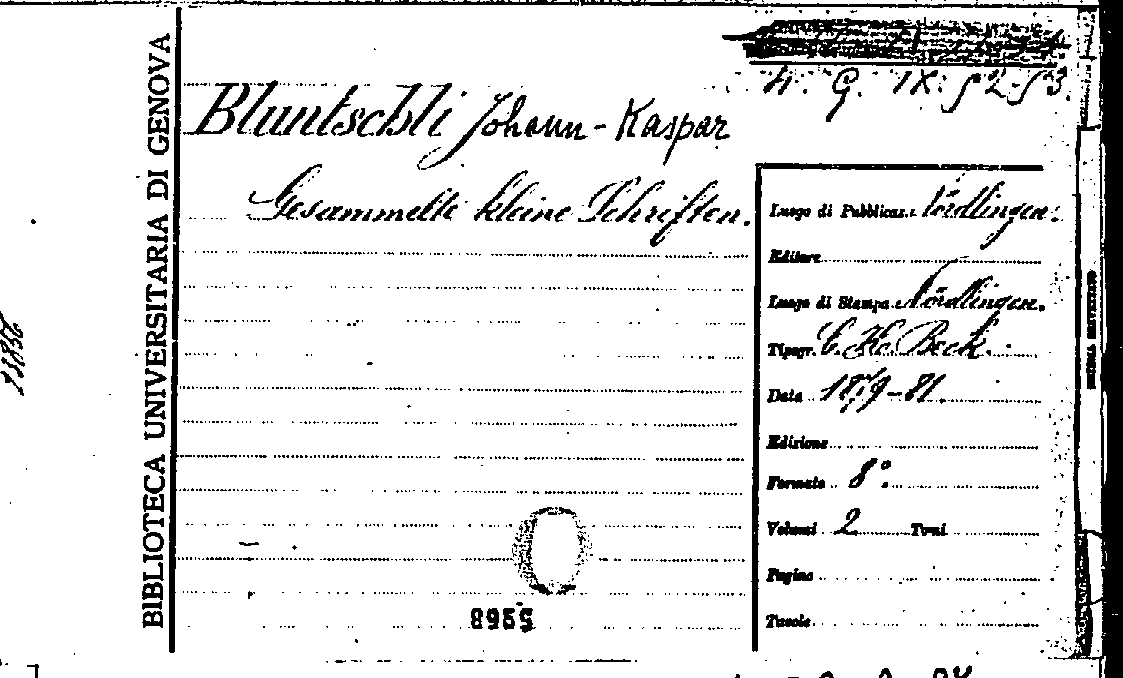 BIBLIOTECA UNIVERSITARIA DI GENOVA
4. G. IX. 52-53.
Bluntschli Johann-Kaspar
Gesammelte kleine Schriften.
Luogo di Pubblicaz. Nördlingen.
Editore
Luogo di Stampa Nördlingen.
Tipogr. C. H. Beck.
Data 1879-81.
Edizione
Formato 8°.
Volumi 2 Tomi
Pagine
Tavole